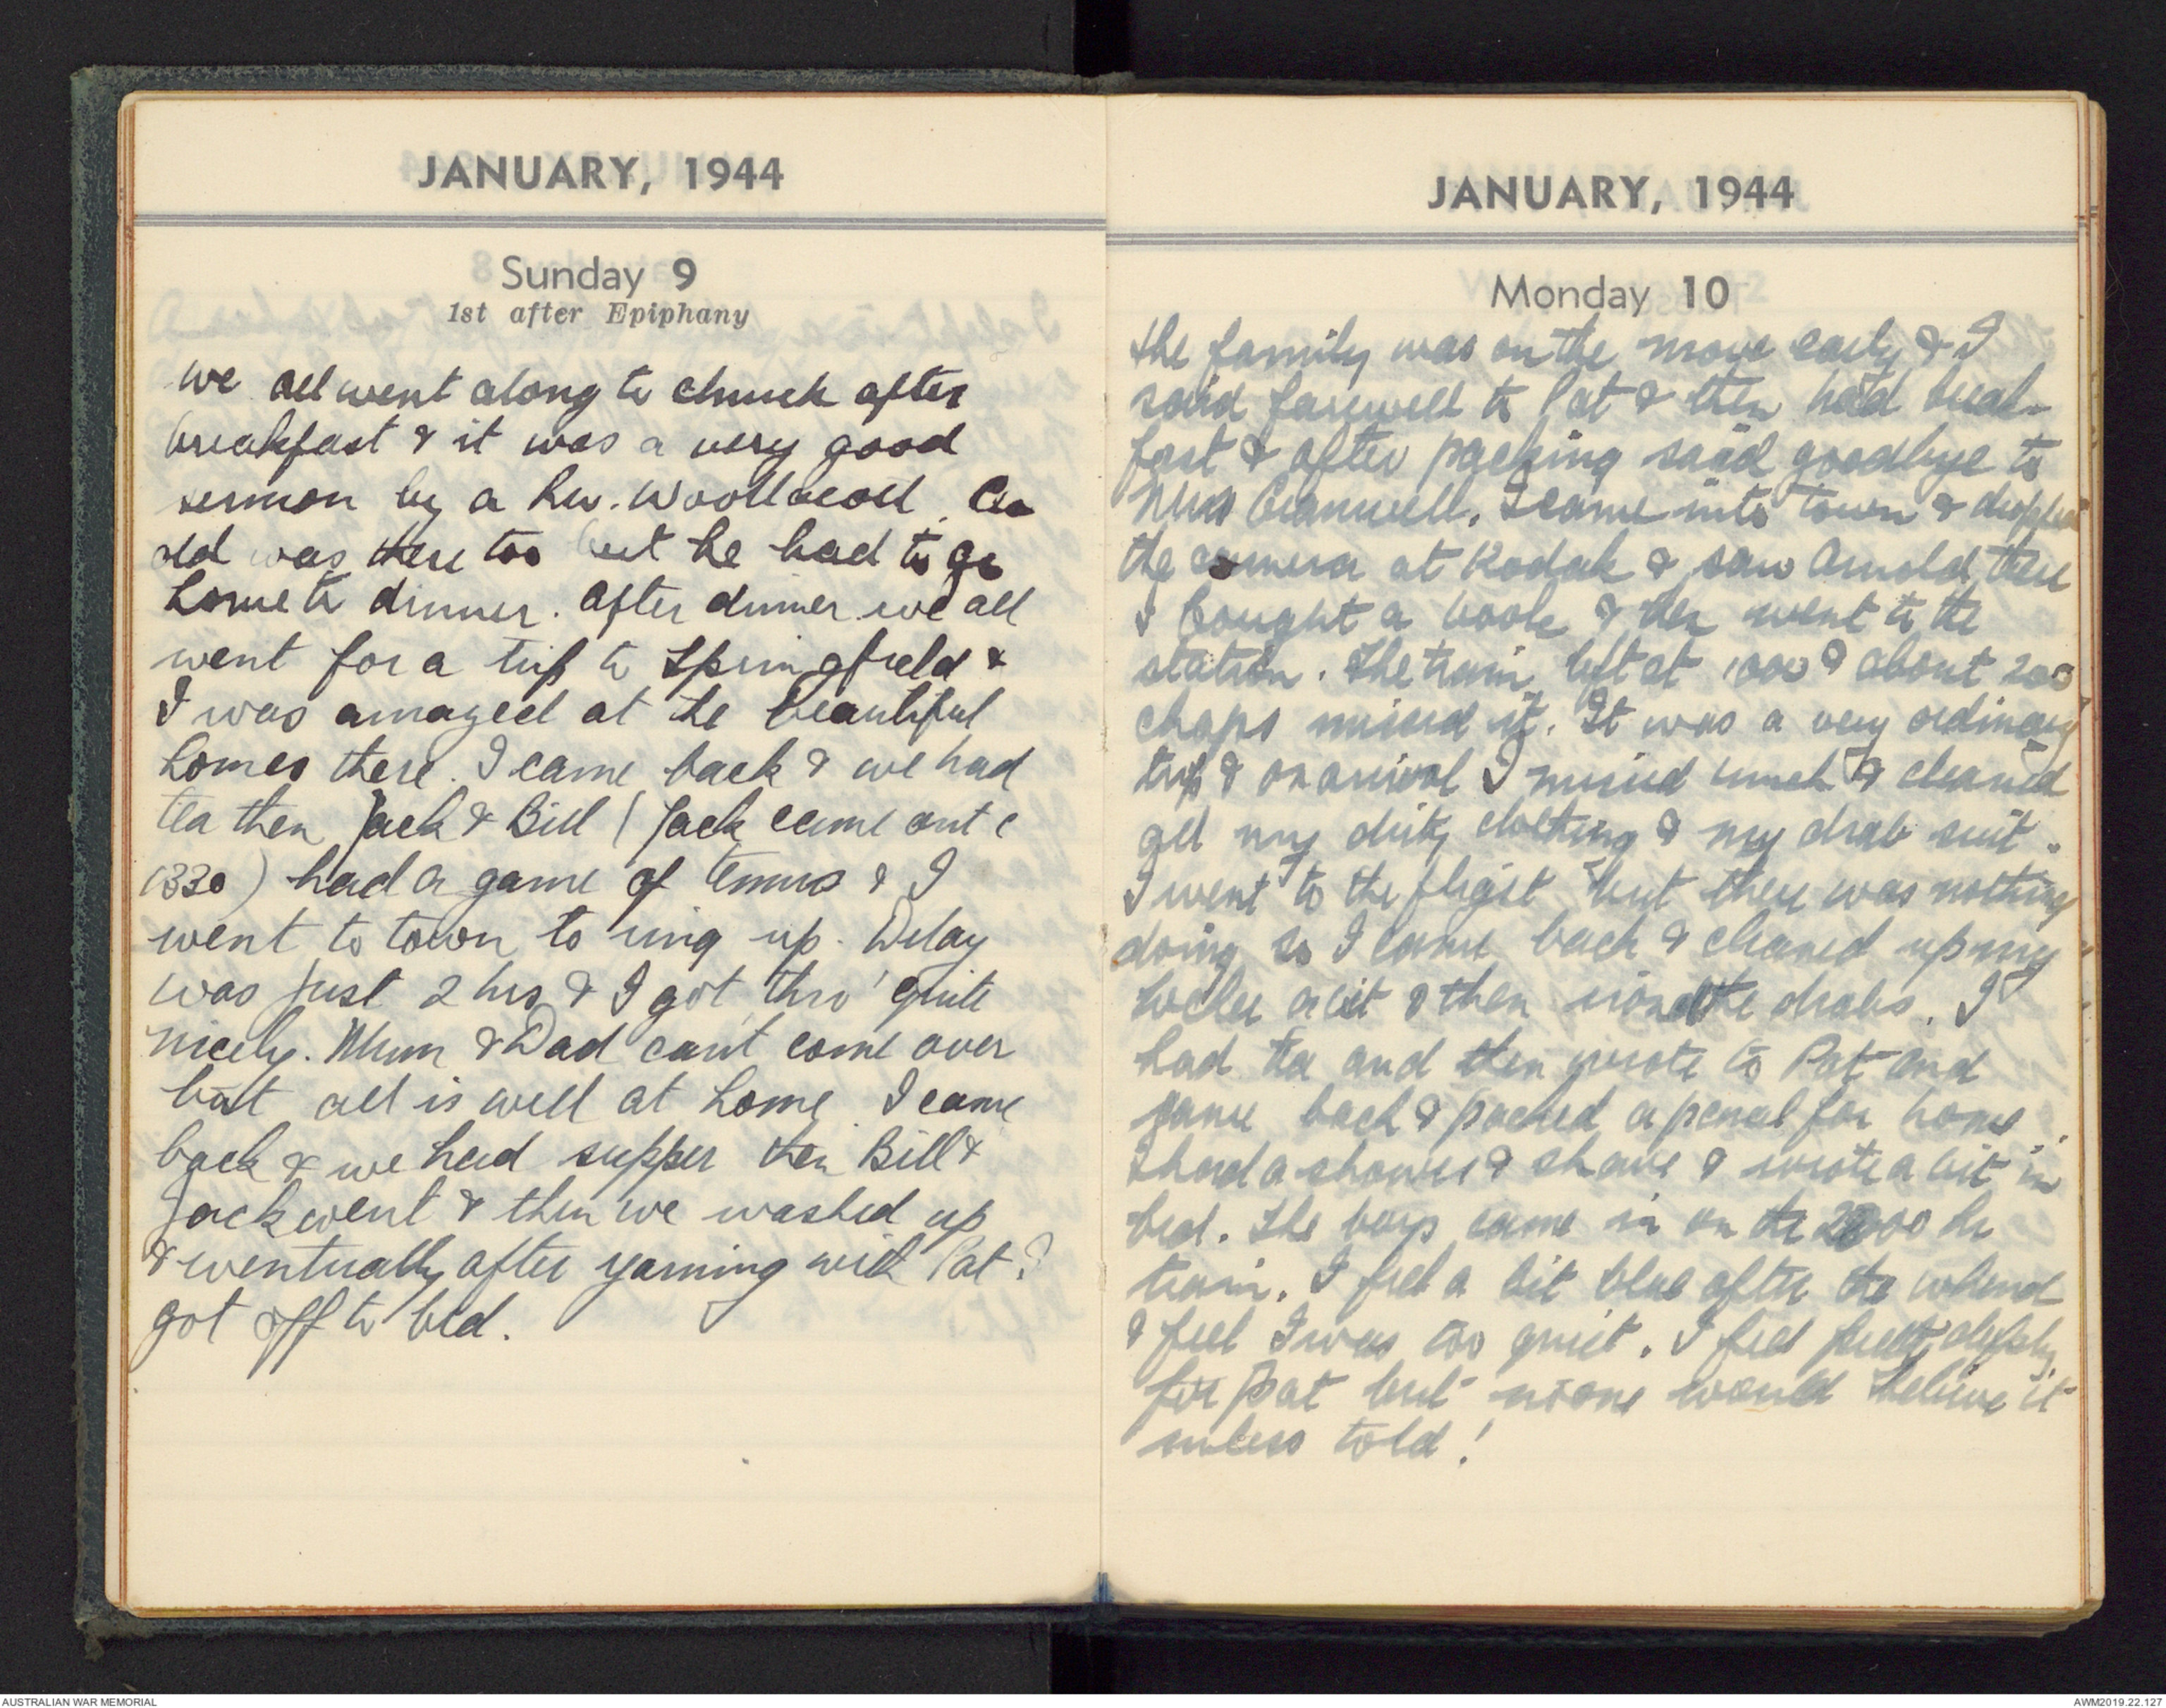 JANUARY, 1944
Sunday 9
1st after Epiphany
we all went along to church after
breakfast & it was a very good
sermon by a Rev. Woollacott.
old was there too but he had to go
home to dinner. After dinner we all
went for a trip to Springfield &
I was amazed at the beautiful
homes there. I came back & we had
tea then Jack & Bill (Jack came out @
1330) had a game of tennis & I
went to town to ring up. Delay
was just 2 hrs & I got thro' quite
nicely. Mum & Dad can't come over
but all is well at home. I came
back & we had supper then Bill &
Jack went & then we washed up
& eventually after yarning with Pat I
got off to bed.
JANUARY, 1944
Monday 10
The family was on the move early & I
said farewell to Pat & then had break-
fast & after packing said goodbye to
Mrs Cranwell. I came into town & dropped
the camera at Kodak & saw Arnold there
I bought a book & then went to the
station. The train left at 1000 & about 200
chaps missed it. It was a very ordinary
trip & on arrival I missed lunch & cleaned
all my dirty clothing & my drab suit.
I went to the flight but there was nothing
doing so I came back & cleaned up my
locker a bit & then ironed the drabs. I
had tea and then wrote to Pat and
came back & packed a parcel for home.
I had a shower & shave & wrote a bit in
bed. The boys came in on the 2200 hr
train. I feel a bit blue after the wkend
& feel I was too quiet. I feel pretty deeply
for Pat but noone would believe it
unless told!
AUSTRALIAN WAR MEMORIAL
AWM2019.22.127